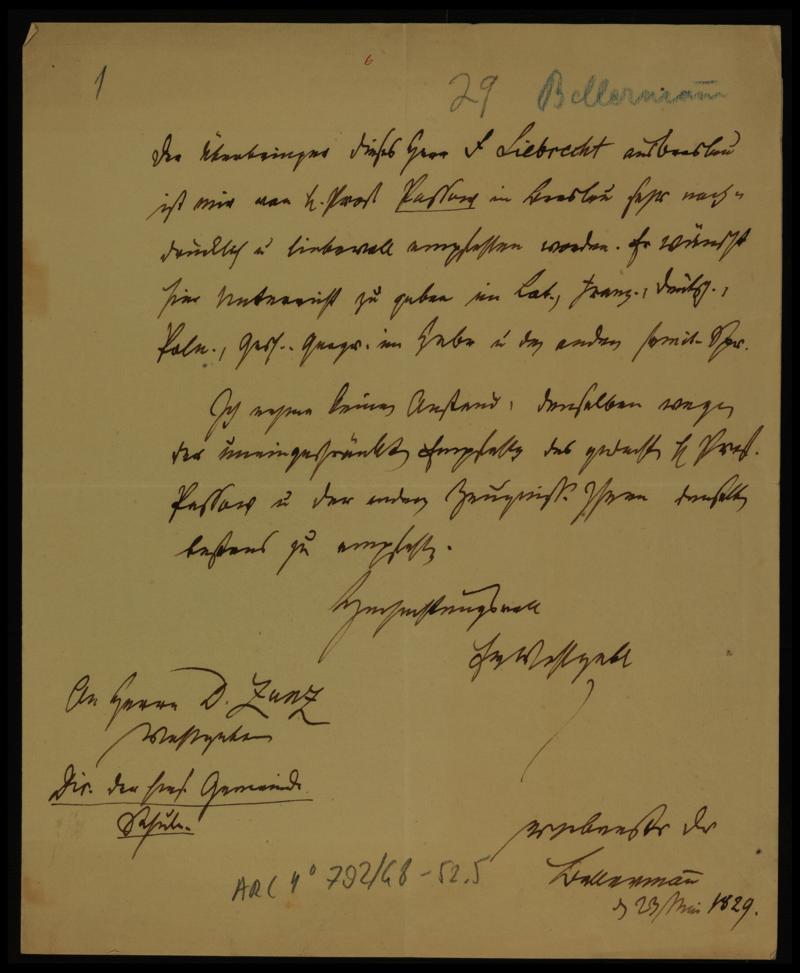 1
6
29 Bellermann
Der Überbringer dieses Herr F Liebrecht aus Breslau
ist mir von H. Prof Passow in Breslau sehr nach-
drücklich u liebevoll empfohlen worden. Er wünscht
hier Unterricht zu geben im Lat., Franz., Deutsch.,
Poln., Gesch. Geogr. im Hebr u den andern semit. Spr.
Ich nehme keinen Anstand, denselben wegen
der uneingeschränkten Empfehlg des gedacht H Prof.
Passow u der andern Zeugniss. Ihnen
bestens zu empfehlen.
Hochachtungsvoll
Ew Wohlgeb
An Herrn D. Zunz
Wohlgeboren
Dir. der Gemeinde
Schule.
ergebenster Dr
Bellermann
d 23 Mai 1829.
ARC 4° 792/G8-52.5